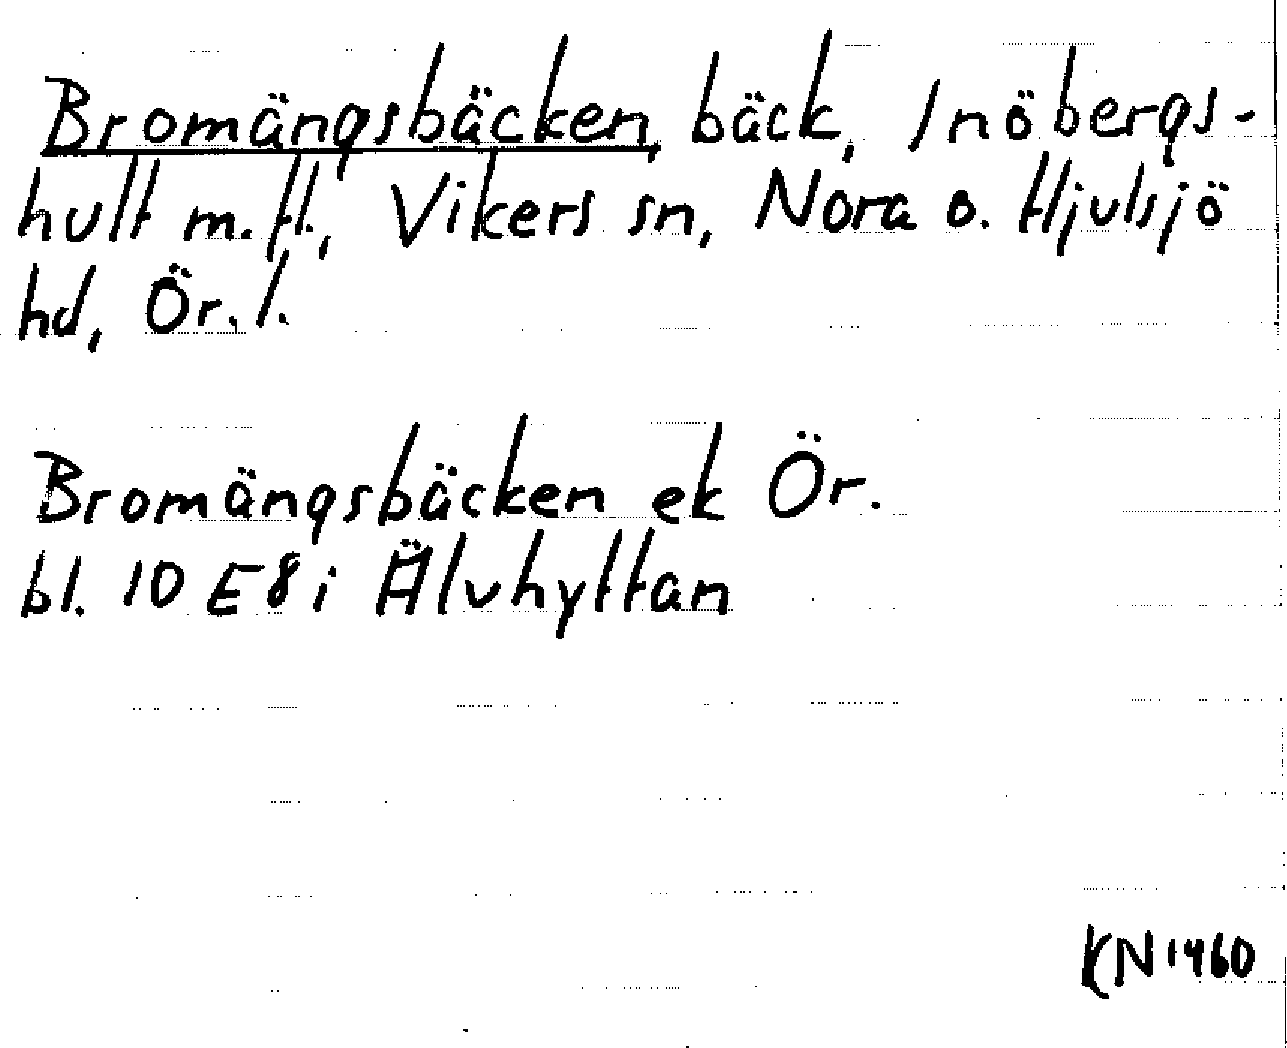 Bromängsbäcken, bäck, Inöbergs-
hult m.fl., Vikers sn, Nora o. Hjulsjö
hd, Ör. l.
Bromängsbäcken ek Ör.
bl. 10 E 8 i Älvhyttan
KN 1460